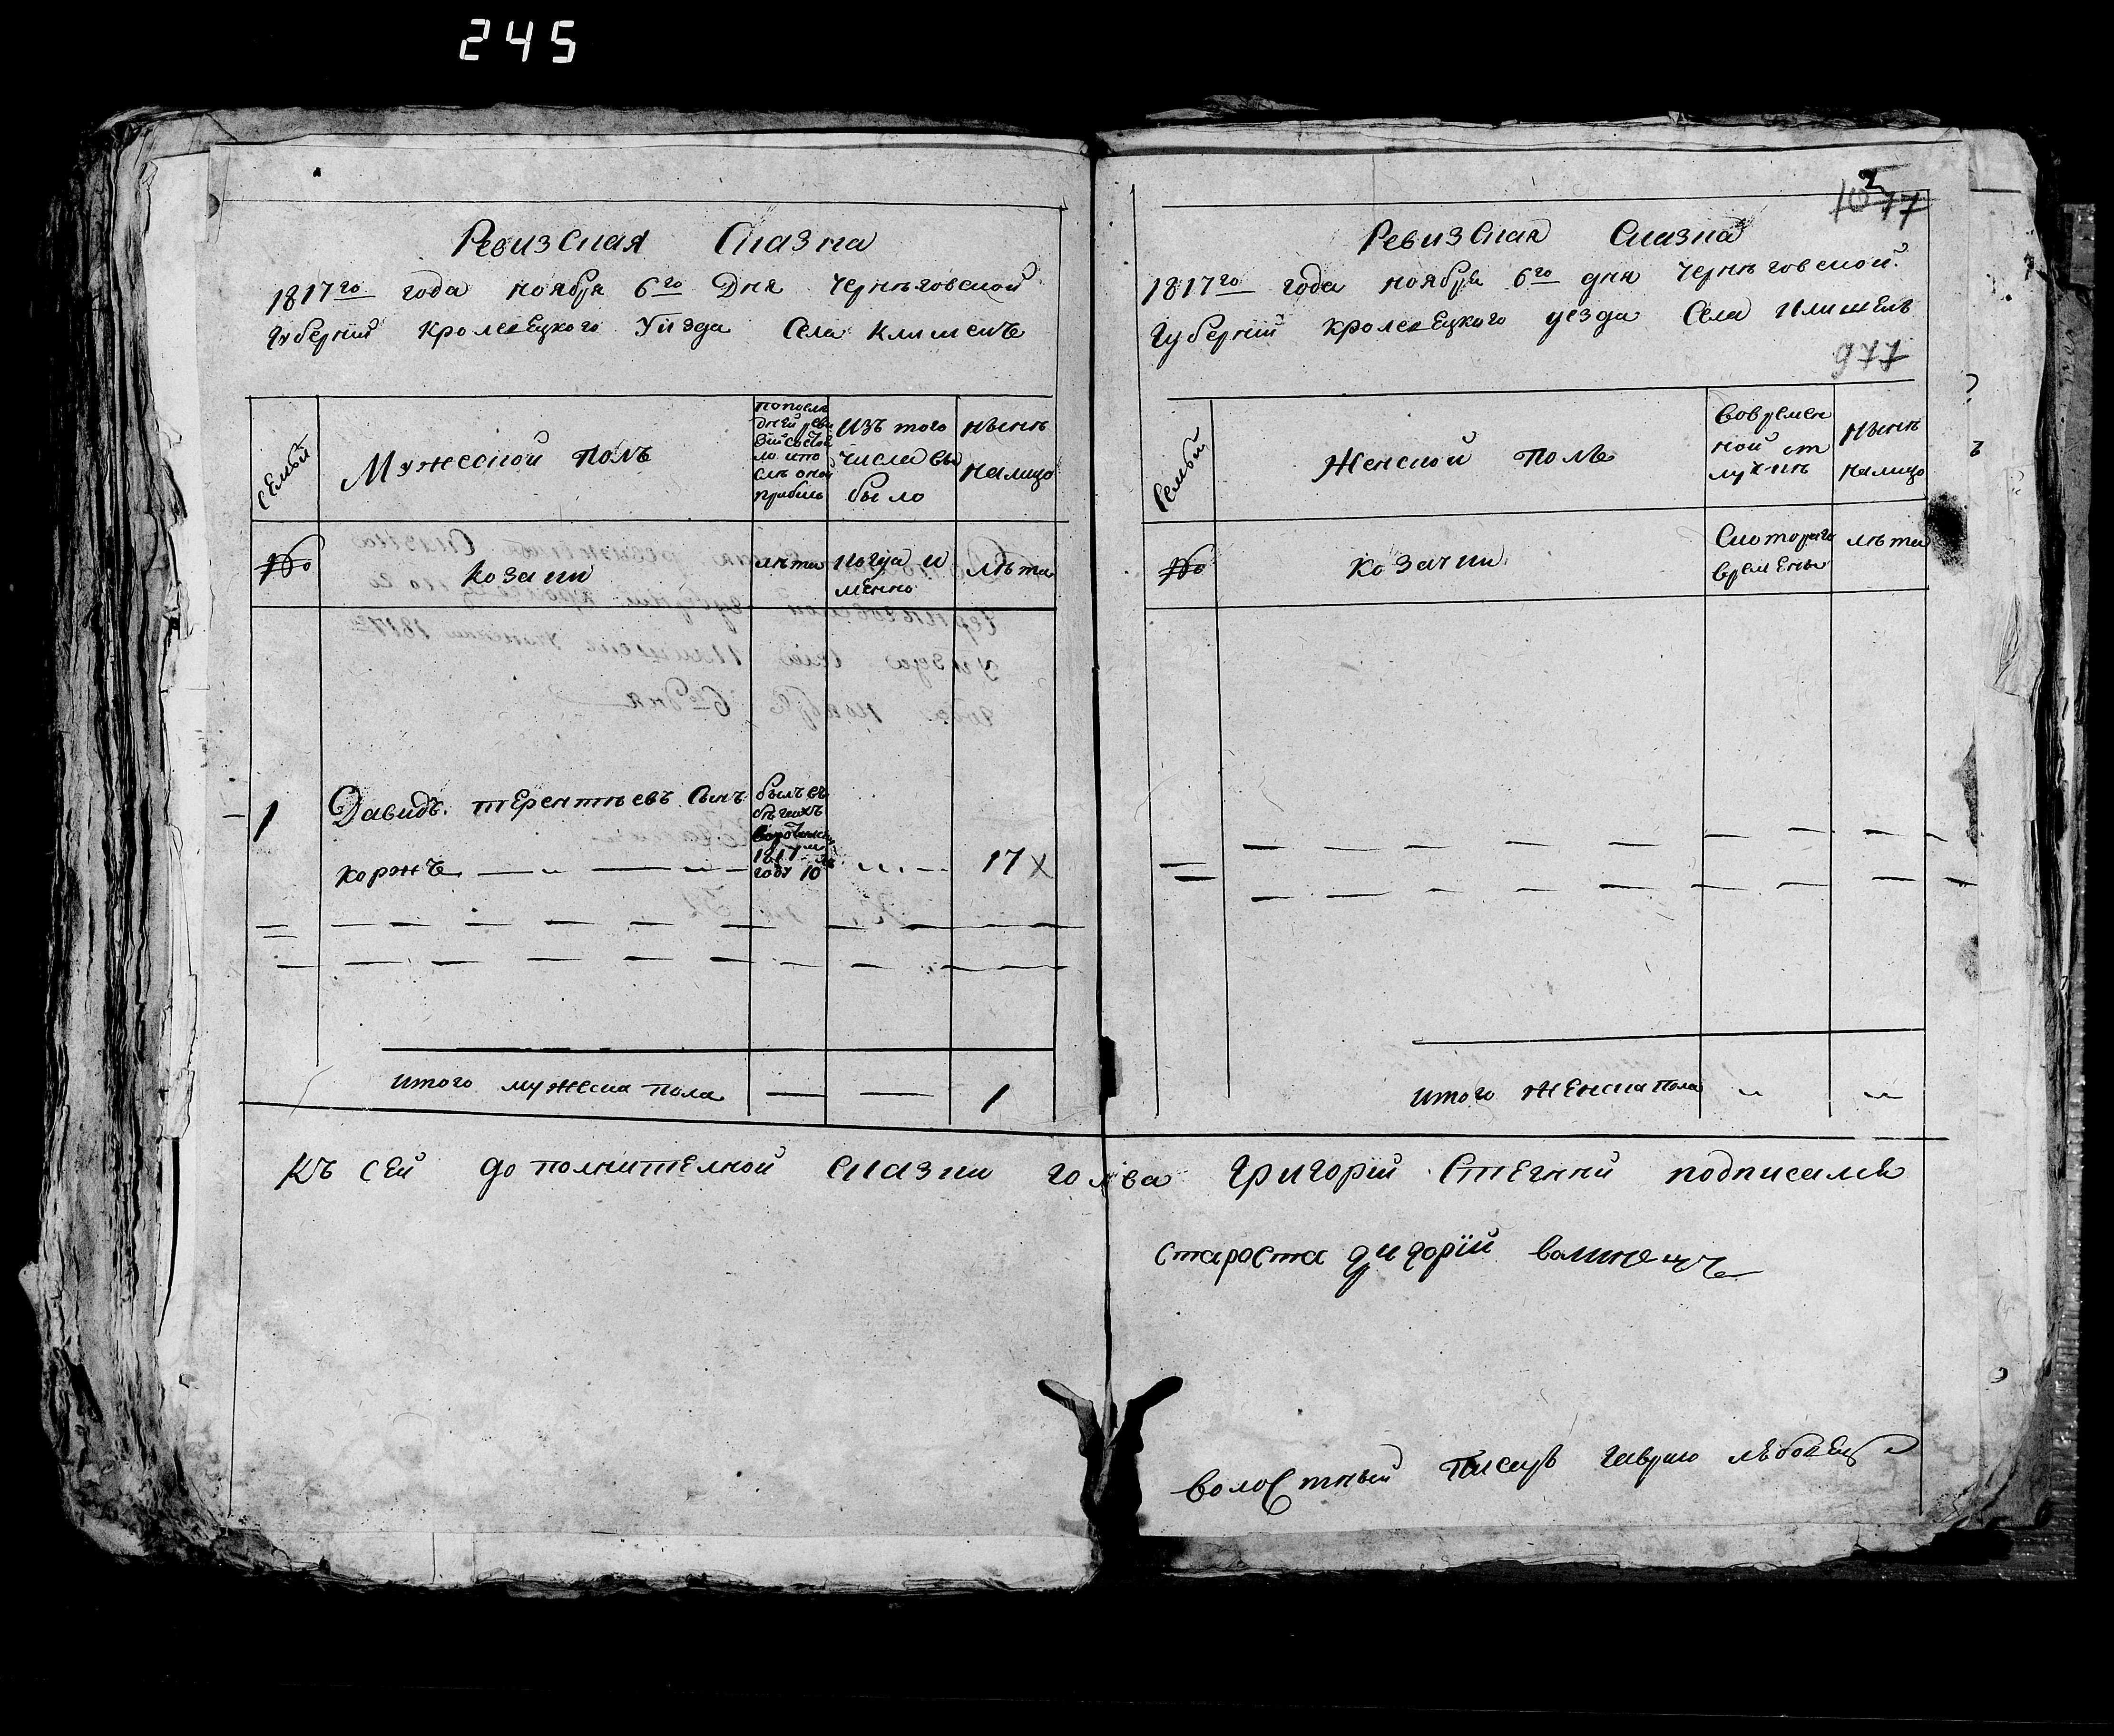 245
Ревизская Сказка
1817го года ноября 6го Дня Черниговской
Губерний Кролевецкого Уизда Села Клишекъ
Семьи
Мужеской полъ
попосле
дней реви
зий состоя
ло и по
сле оной
прибыло
Изъ того
числа вы
было
Нынѣ
налицо
№о
Козаки
лѣта
Когда и
менно
лѣта
1
Давидъ Терентиевъ Сынъ
былъ въ
бѣгахъ
1817м
году 10
Коржъ
17 х
Итого мужеска пола
1
2
1077
Ревизская Сказка
1817го года ноября 6го дня Черниговской
Губерний Кролевецкого уезда Села Клишекъ
977
Семьи
Женской полъ
Вовремен
ной от
лучкѣ
Нынѣ
налицо
№о
Козачки
Скоторого
времены
лѣта
Итого женска пола
Къ сей дополнителной сказки голва Григорий Стегний подписался
Староста
волостный писарь гаврило